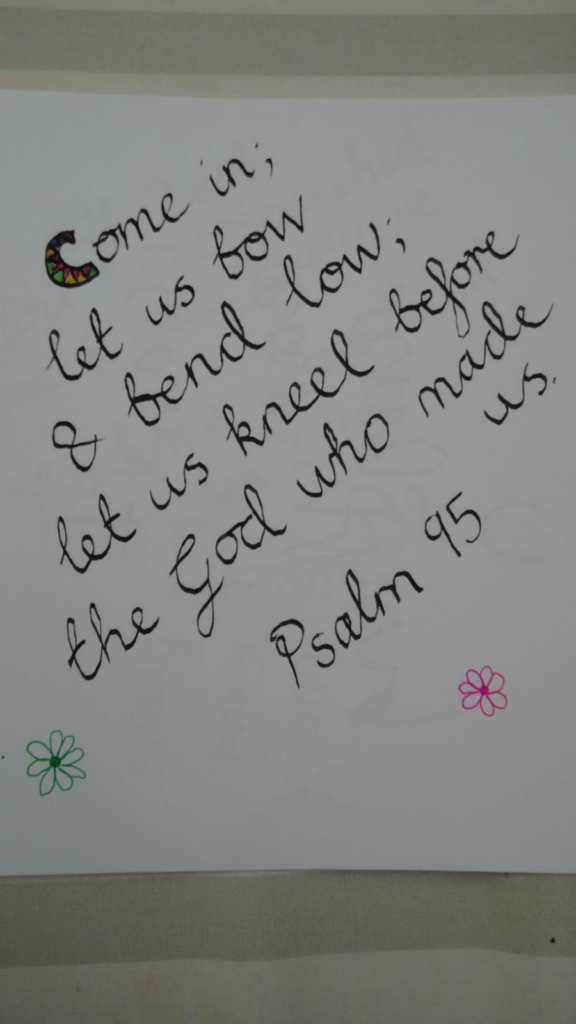 Come in;
let us bow
& bend low;
let us kneel before
the God who made
us.
Psalm 95